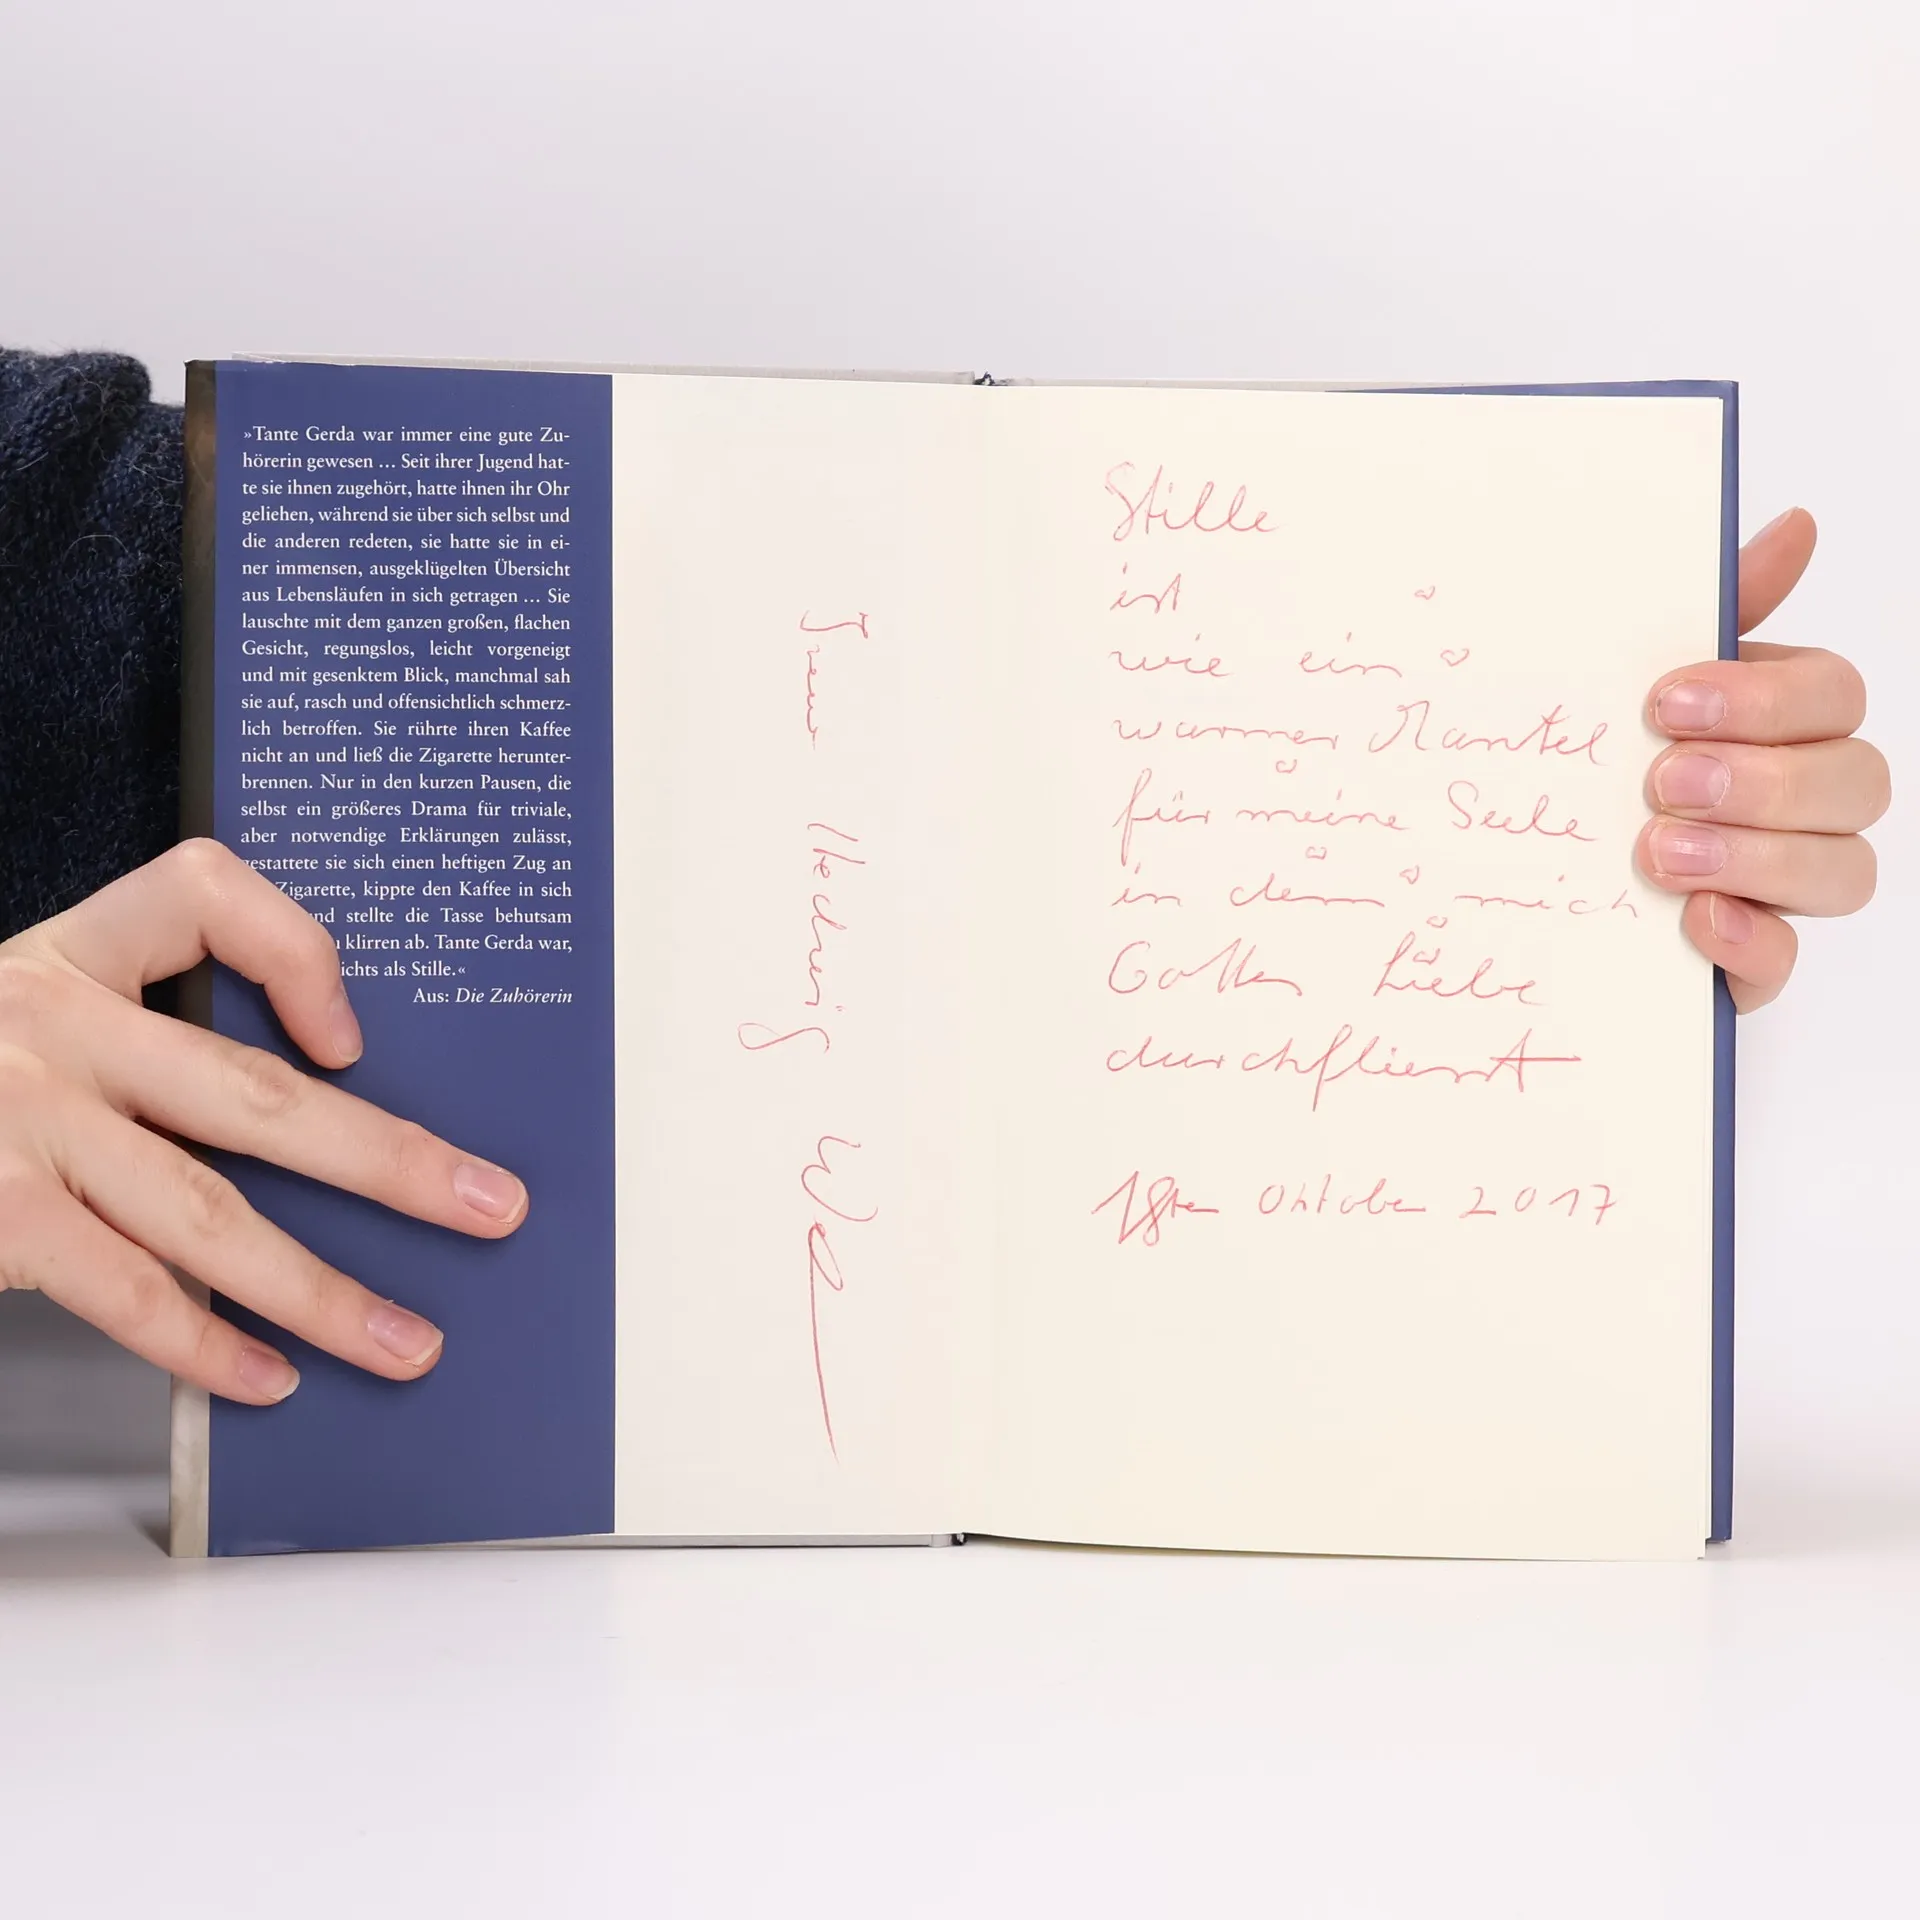 »Tante Gerda war immer eine gute Zu-
hörerin gewesen ... Seit ihrer Jugend hat-
te sie ihnen zugehört, hatte ihnen ihr Ohr
geliehen, während sie über sich selbst und
die anderen redeten, sie hatte sie in ei-
ner immensen, ausgeklügelten Übersicht
aus Lebensläufen in sich getragen ... Sie
lauschte mit dem ganzen großen, flachen
Gesicht, regungslos, leicht vorgeneigt
und mit gesenktem Blick, manchmal sah
sie auf, rasch und offensichtlich schmerz-
lich betroffen. Sie rührte ihren Kaffee
nicht an und ließ die Zigarette herunter-
brennen. Nur in den kurzen Pausen, die
selbst ein größeres Drama für triviale,
aber notwendige Erklärungen zulässt,
gestattete sie sich einen heftigen Zug an
Zigarette, kippte den Kaffee in sich
und stellte die Tasse behutsam
klirren ab. Tante Gerda war,
als Stille.«
Aus: Die Zuhörerin
Stille
ist
wie ein
warmer Mantel
für meine Seele
in dem mich
Gottes Liebe
durchfliesst
18ten Oktober 2017